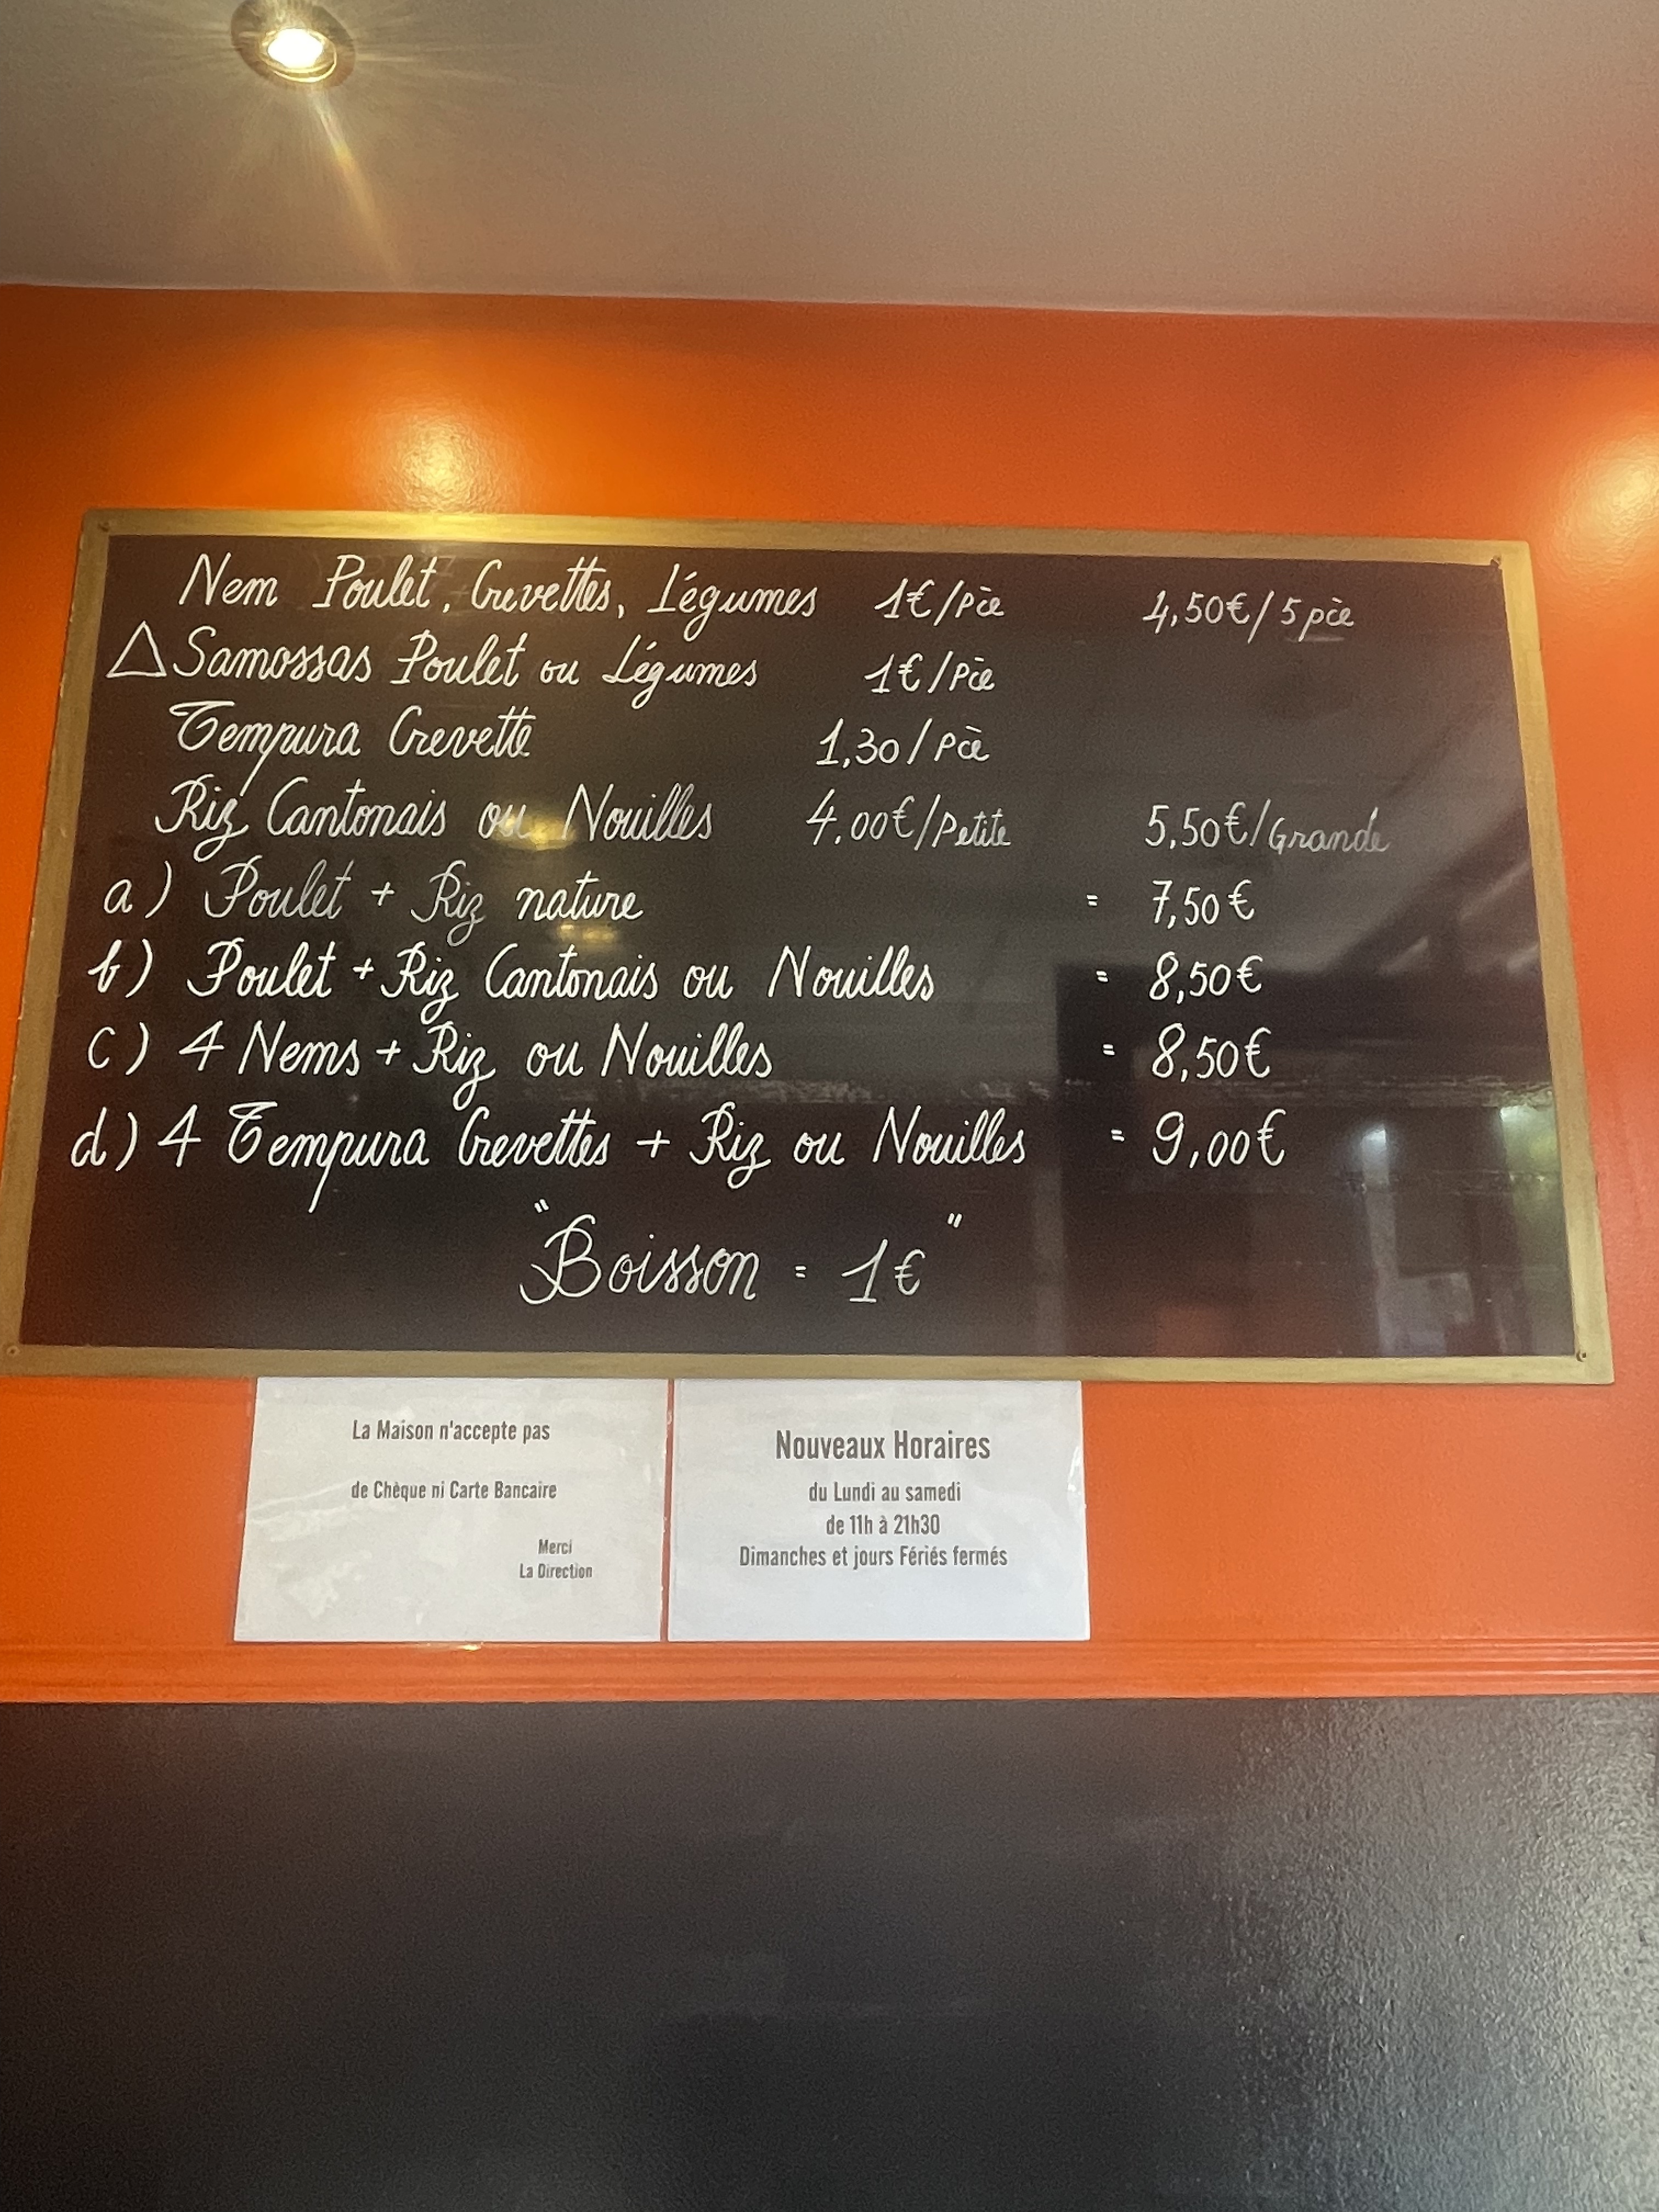 Nem Poulet, Crevettes, Légumes 1€/Pce 4,50€/5 pce
Samossas Poulet ou Légumes 1€/Pce
Tempura Crevette 1,30/Pce
Riz Cantonais ou Nouilles 4.00€/Petite 5,50€/Grande
a) Poulet + Riz nature = 7,50€
b) Poulet + Riz Cantonais ou Nouilles = 8,50€
c) 4 Nems + Riz ou Nouilles = 8,50€
d) 4 Tempura Crevettes + Riz ou Nouilles = 9,00€
"Boisson = 1€"
La Maison n'accepte pas
de Chèque ni Carte Bancaire
Merci
La Direction
Nouveaux Horaires
du Lundi au samedi
de 11h à 21h30
Dimanches et jours Fériés fermés